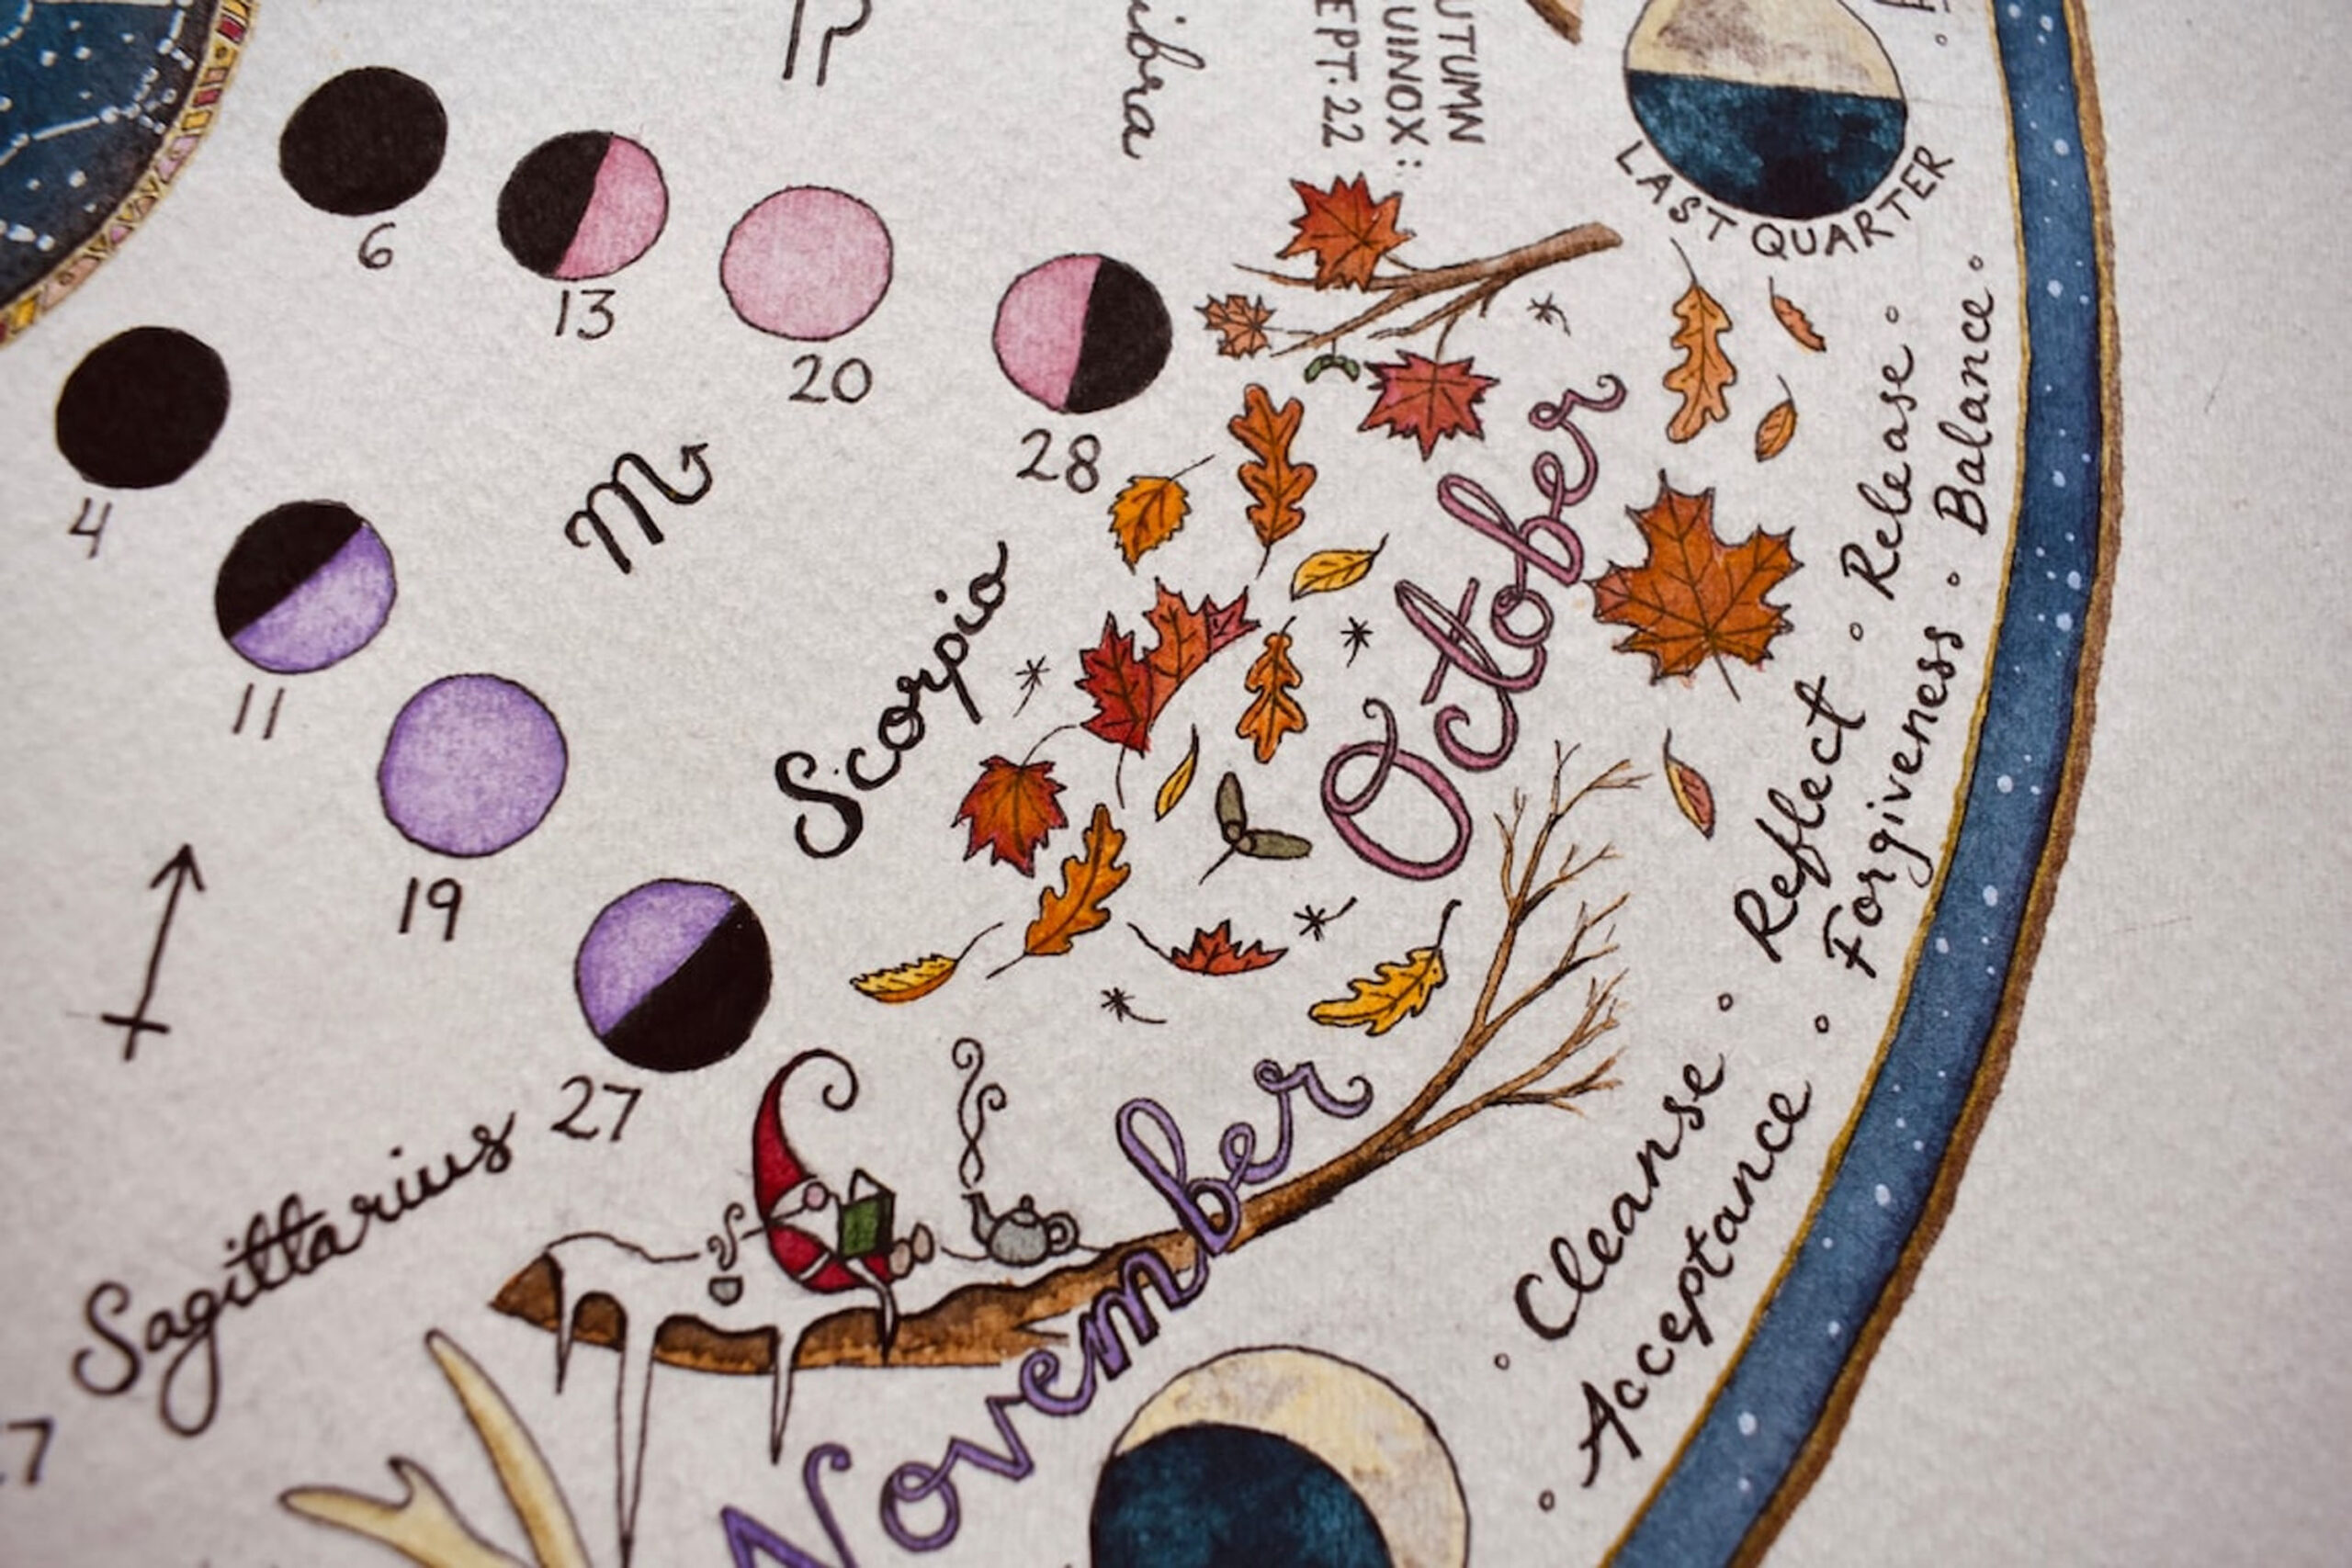 UTUMN
UINOX:
EPT. 22
ibra
LAST QUARTER
6
13
20
28
October
Scorpio
4
11
19
27
November
Sagittarius
7
° Cleanse ° Reflect ° Release °
° Acceptance ° Forgiveness ° Balance °